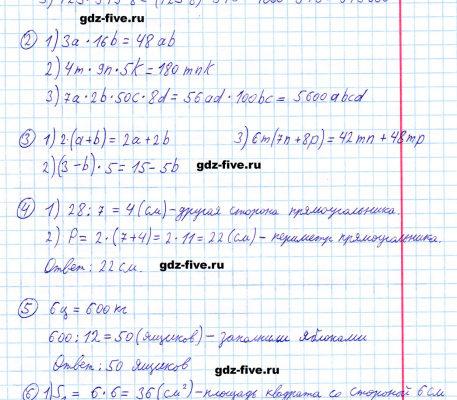 gdz-five.ru
② 1) 3a · 16b = 48ab
2) 4m · 9n · 5k = 180mnk
3) 7a · 2b · 50c · 8d = 56ad · 100bc = 5600abcd
③ 1) 2·(a+b) = 2a + 2b 3) 6m(7n+8p) = 42mn + 48mp
2) (3-b) · 5 = 15 - 5b gdz-five.ru
④ 1) 28 : 7 = 4 (см) - другая сторона прямоугольника.
2) P = 2 · (7+4) = 2 · 11 = 22 (см) - периметр прямоугольника.
Ответ: 22 см. gdz-five.ru
⑤ 6 ц = 600 кг
600 : 12 = 50 (ящиков) - заполнили яблоками
Ответ: 50 ящиков
gdz-five.ru
⑥ 1) = 6 · 6 = 36 (см²) - площадь квадрата со стороной 6 см